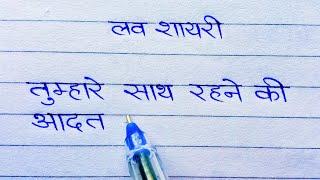 लव शायरी
तुम्हारे साथ रहने की
आदत